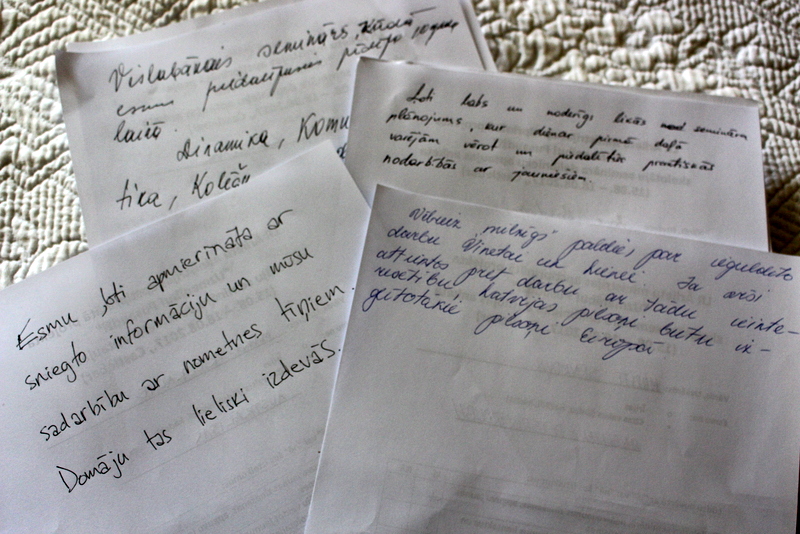 Vislabākais seminārs, kādā
esmu piedalījusies pēdējo 10 gadu
laikā.
Dinamika, Komu
tika, Koleģ
Ļoti labs un noderīgs likās semināra
plānojums, kur dienas pirmā daļā
varējām vērot un piedalīties praktiskās
nodarbībās ar jauniešiem.
Esmu ļoti apmierināta ar
sniegto informāciju un mūsu
sadarbību ar nometnes tīņiem.
Domāju tas lieliski izdevās.
milzīgs paldies par ieguldīto
darbu Vinetai un Ja arī
attiektos pret darbu ar tādu ieinte-
resētību Latvijas pilsoņi būtu iz-
glītotākie pilsoņi Eiropā